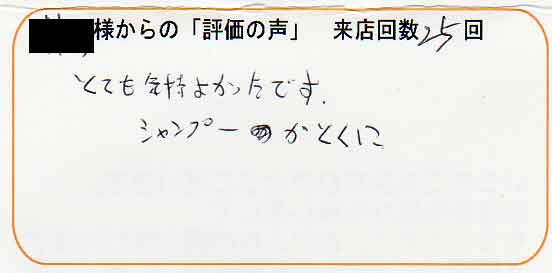 様からの「評価の声」 来店回数25回
とても気持よかったです.
シャンプーがとくに